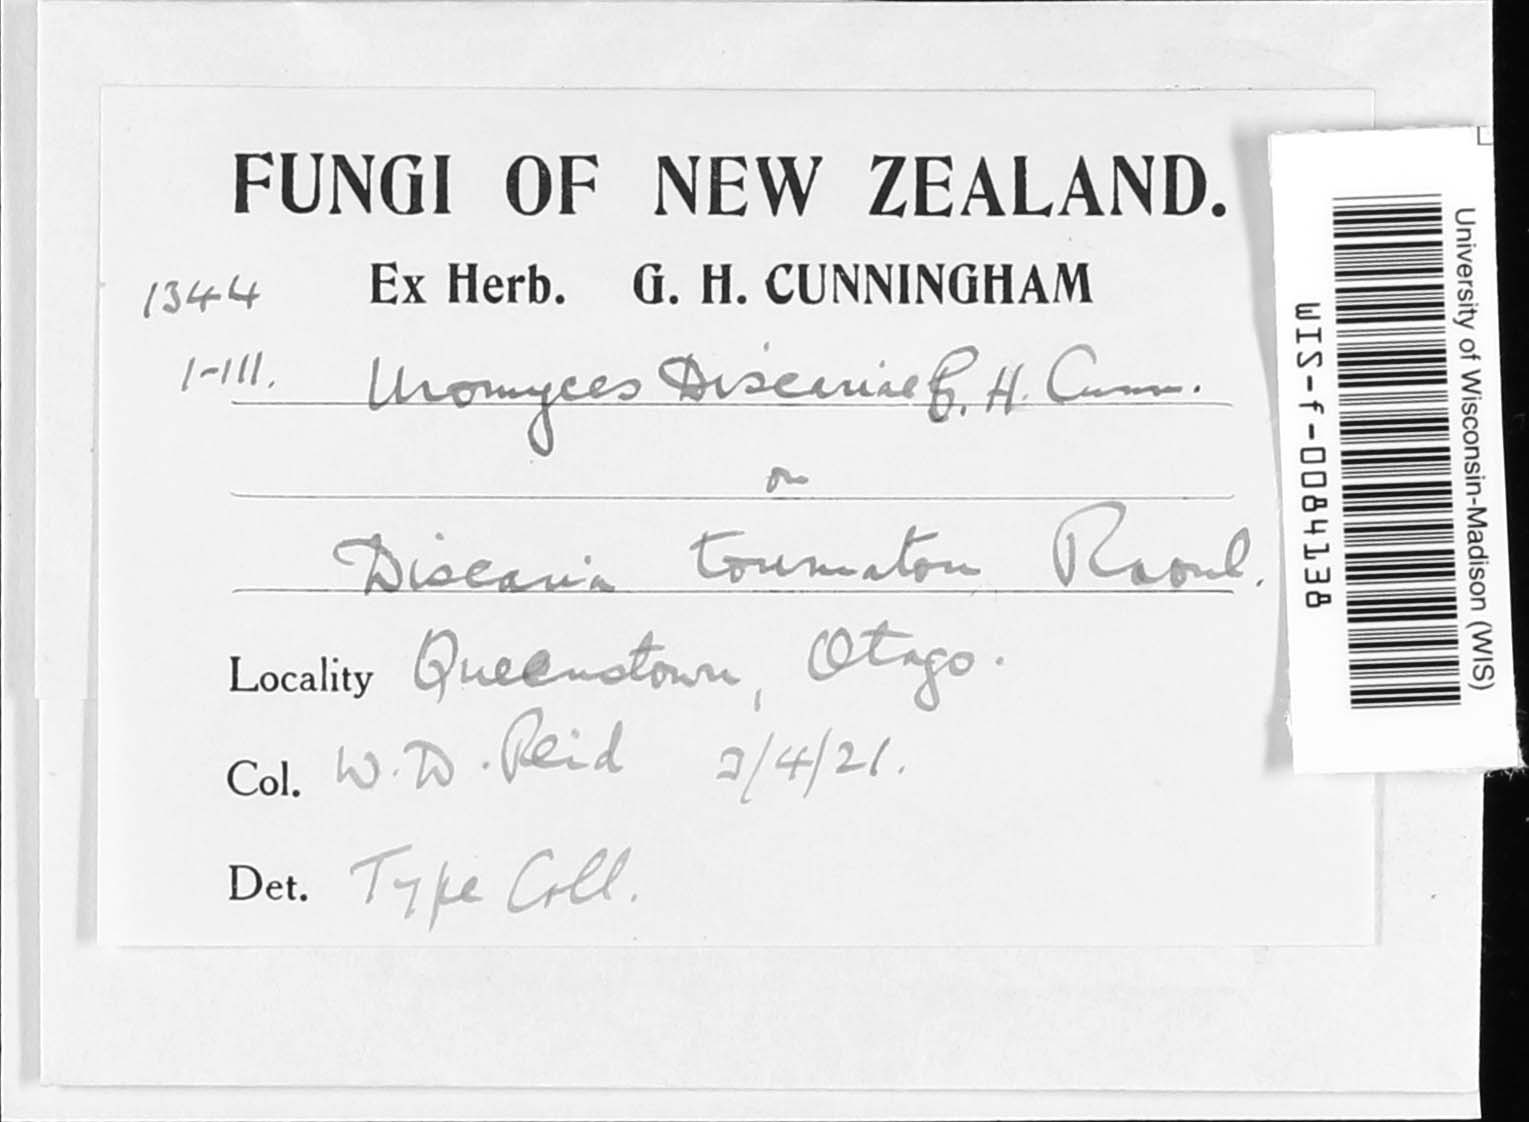 FUNGI OF NEW ZEALAND.
1344 Ex Herb. G. H. CUNNINGHAM
I-III. Uromyces Discariae G. H. Cunn.
on
Discaria toumatou Raoul.
Locality Queenstown, Otago.
Col. W. D. Reid 2/4/21.
Det. Type Coll.
University of Wisconsin-Madison (WIS)
WIS-f-0084138